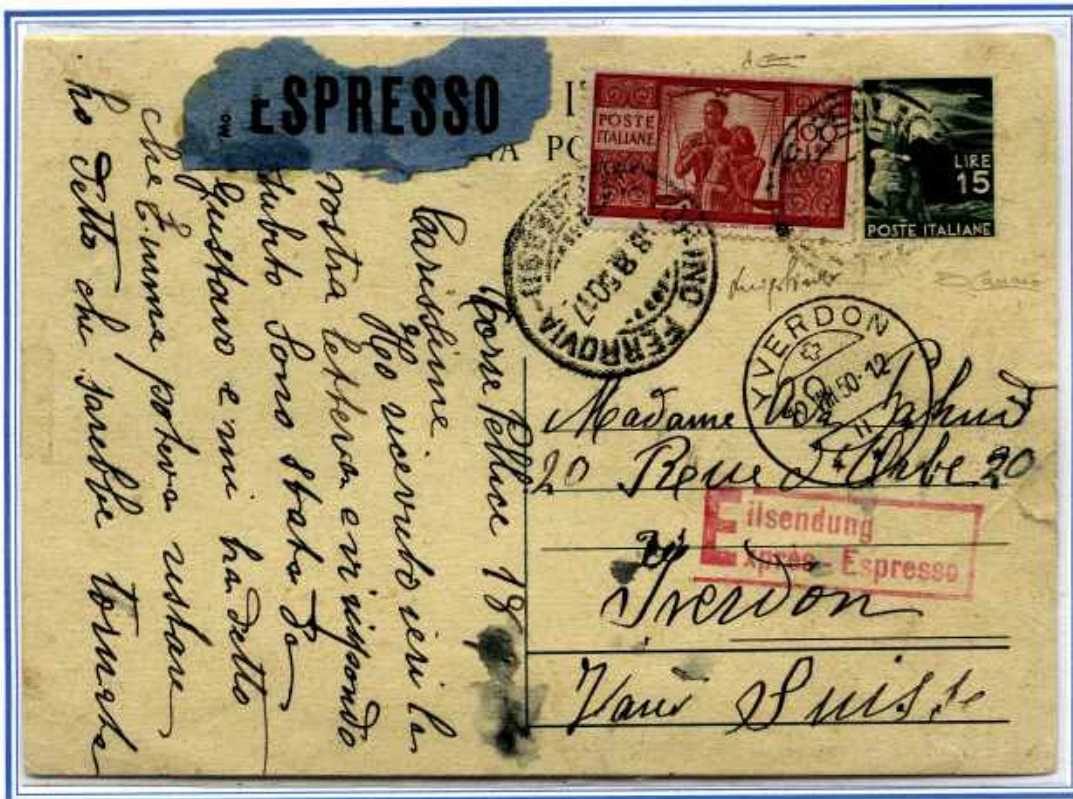 ESPRESSO
POSTE
ITALIANE
100
LIRE
15
POSTE ITALIANE
FERROVIA
YVERDON
50-12
Madame
20 Rue d'Orbe 20
Yverdon
Suisse
Eilsendung
Exprès - Espresso
Torre Pellice 18
Carissime
Ho ricevuto ieri la
vostra lettera e vi rispondo
subito Sono stata da
Gustavo e mi han detto
che Emma poteva restare
ho detto che sarebbe tornata